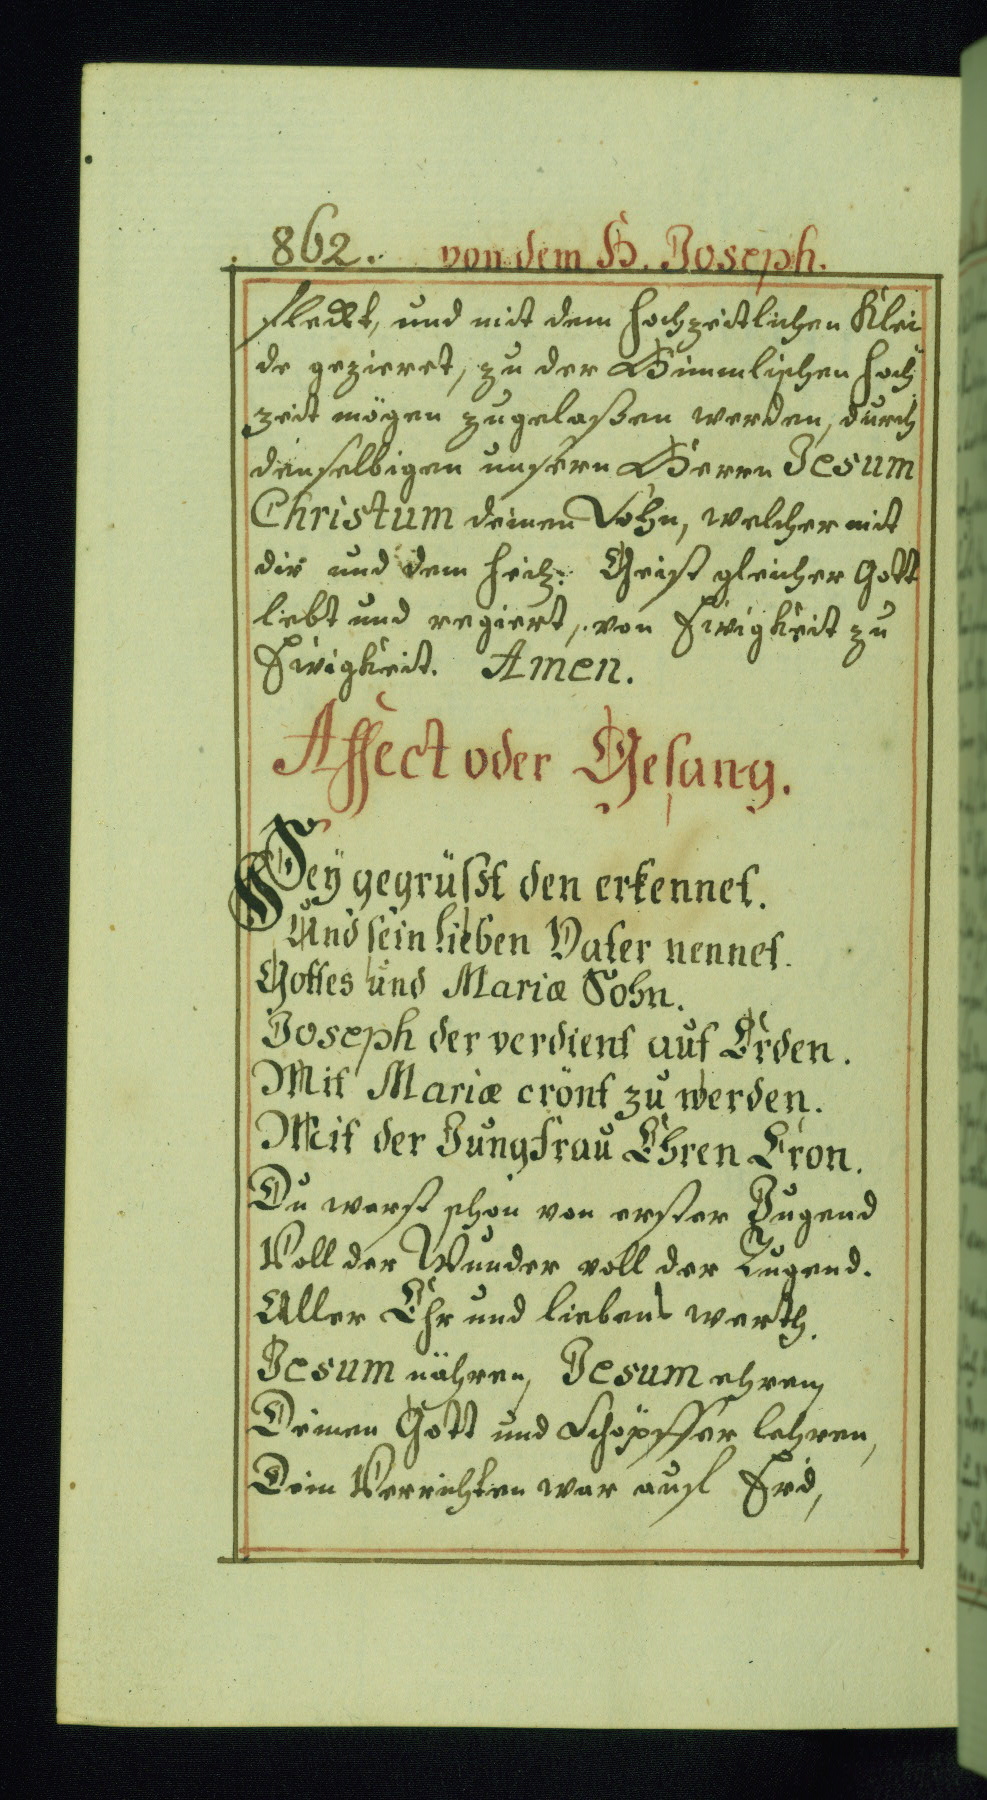 862. von dem H. Joseph.
fleckt, und mit dem hochzeitlichen Klei
de gezieret, zu der Himmlischen hoch
zeit mögen zugelaßen werden, durch
denselbigen unsern Herrn Jesum
Christum deinen Sohn, welcher mit
dir und dem heilg: Geist gleicher Gott
lebt und regiert, von Ewigkeit zu
Ewigkeit. Amen.
Affect oder Gesang.
Sey gegrüßt den erkennet.
Und sein lieben Vater nennet.
Gottes und Mariæ Sohn.
Joseph der verdient auf Erden.
Mit Mariæ crönt zu werden.
Mit der Jungfrau Ehren Cron.
Du warst schon von erster Jugend
Voll der Wunder voll der Tugend.
Aller Ehr und liebens werth.
Jesum nähren, Jesum ehren,
Deinen Gott und Schöpffer lehren,
Dein Verrichten war auf Erd,